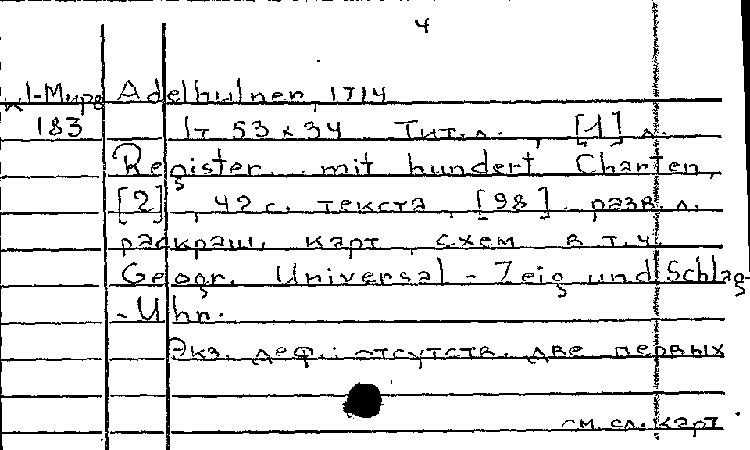 4
К1-Мире Adelbulner, 1714
183 1т 53 x 34 Тит. л., [1] л.
Register.. mit hundert Charten,
[2], 42 с. текста, [98] разв. л.
раскраш. карт, схем в т.ч.
Geogr. Universal - Zeig und Schlag-
-Uhr.
Экз. деф.: отсутств. две первых
см. сл. карт.